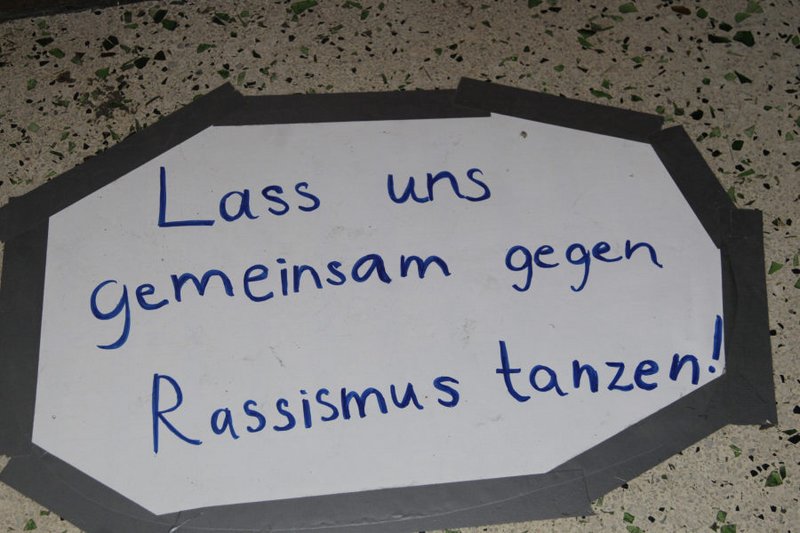 Lass uns
gemeinsam gegen
Rassismus tanzen!